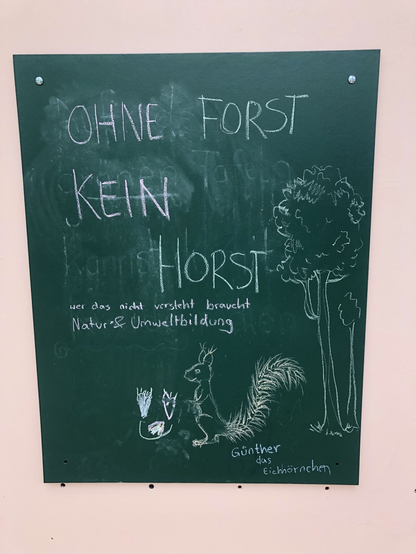 OHNE FORST
KEIN
HORST
wer das nicht versteht braucht
Natur- & Umweltbildung
Günther
das
Eichhörnchen